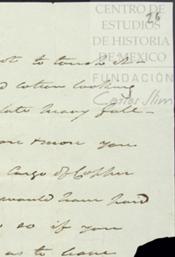 CENTRO DE
ESTUDIOS
DE HISTORIA
DE MEXICO
FUNDACIÓN
Carlos Slim
26
not to touch it
cotton looking
late heavy fall
more & more you
Cargo of Copper
would have had
so as if you
as to leave